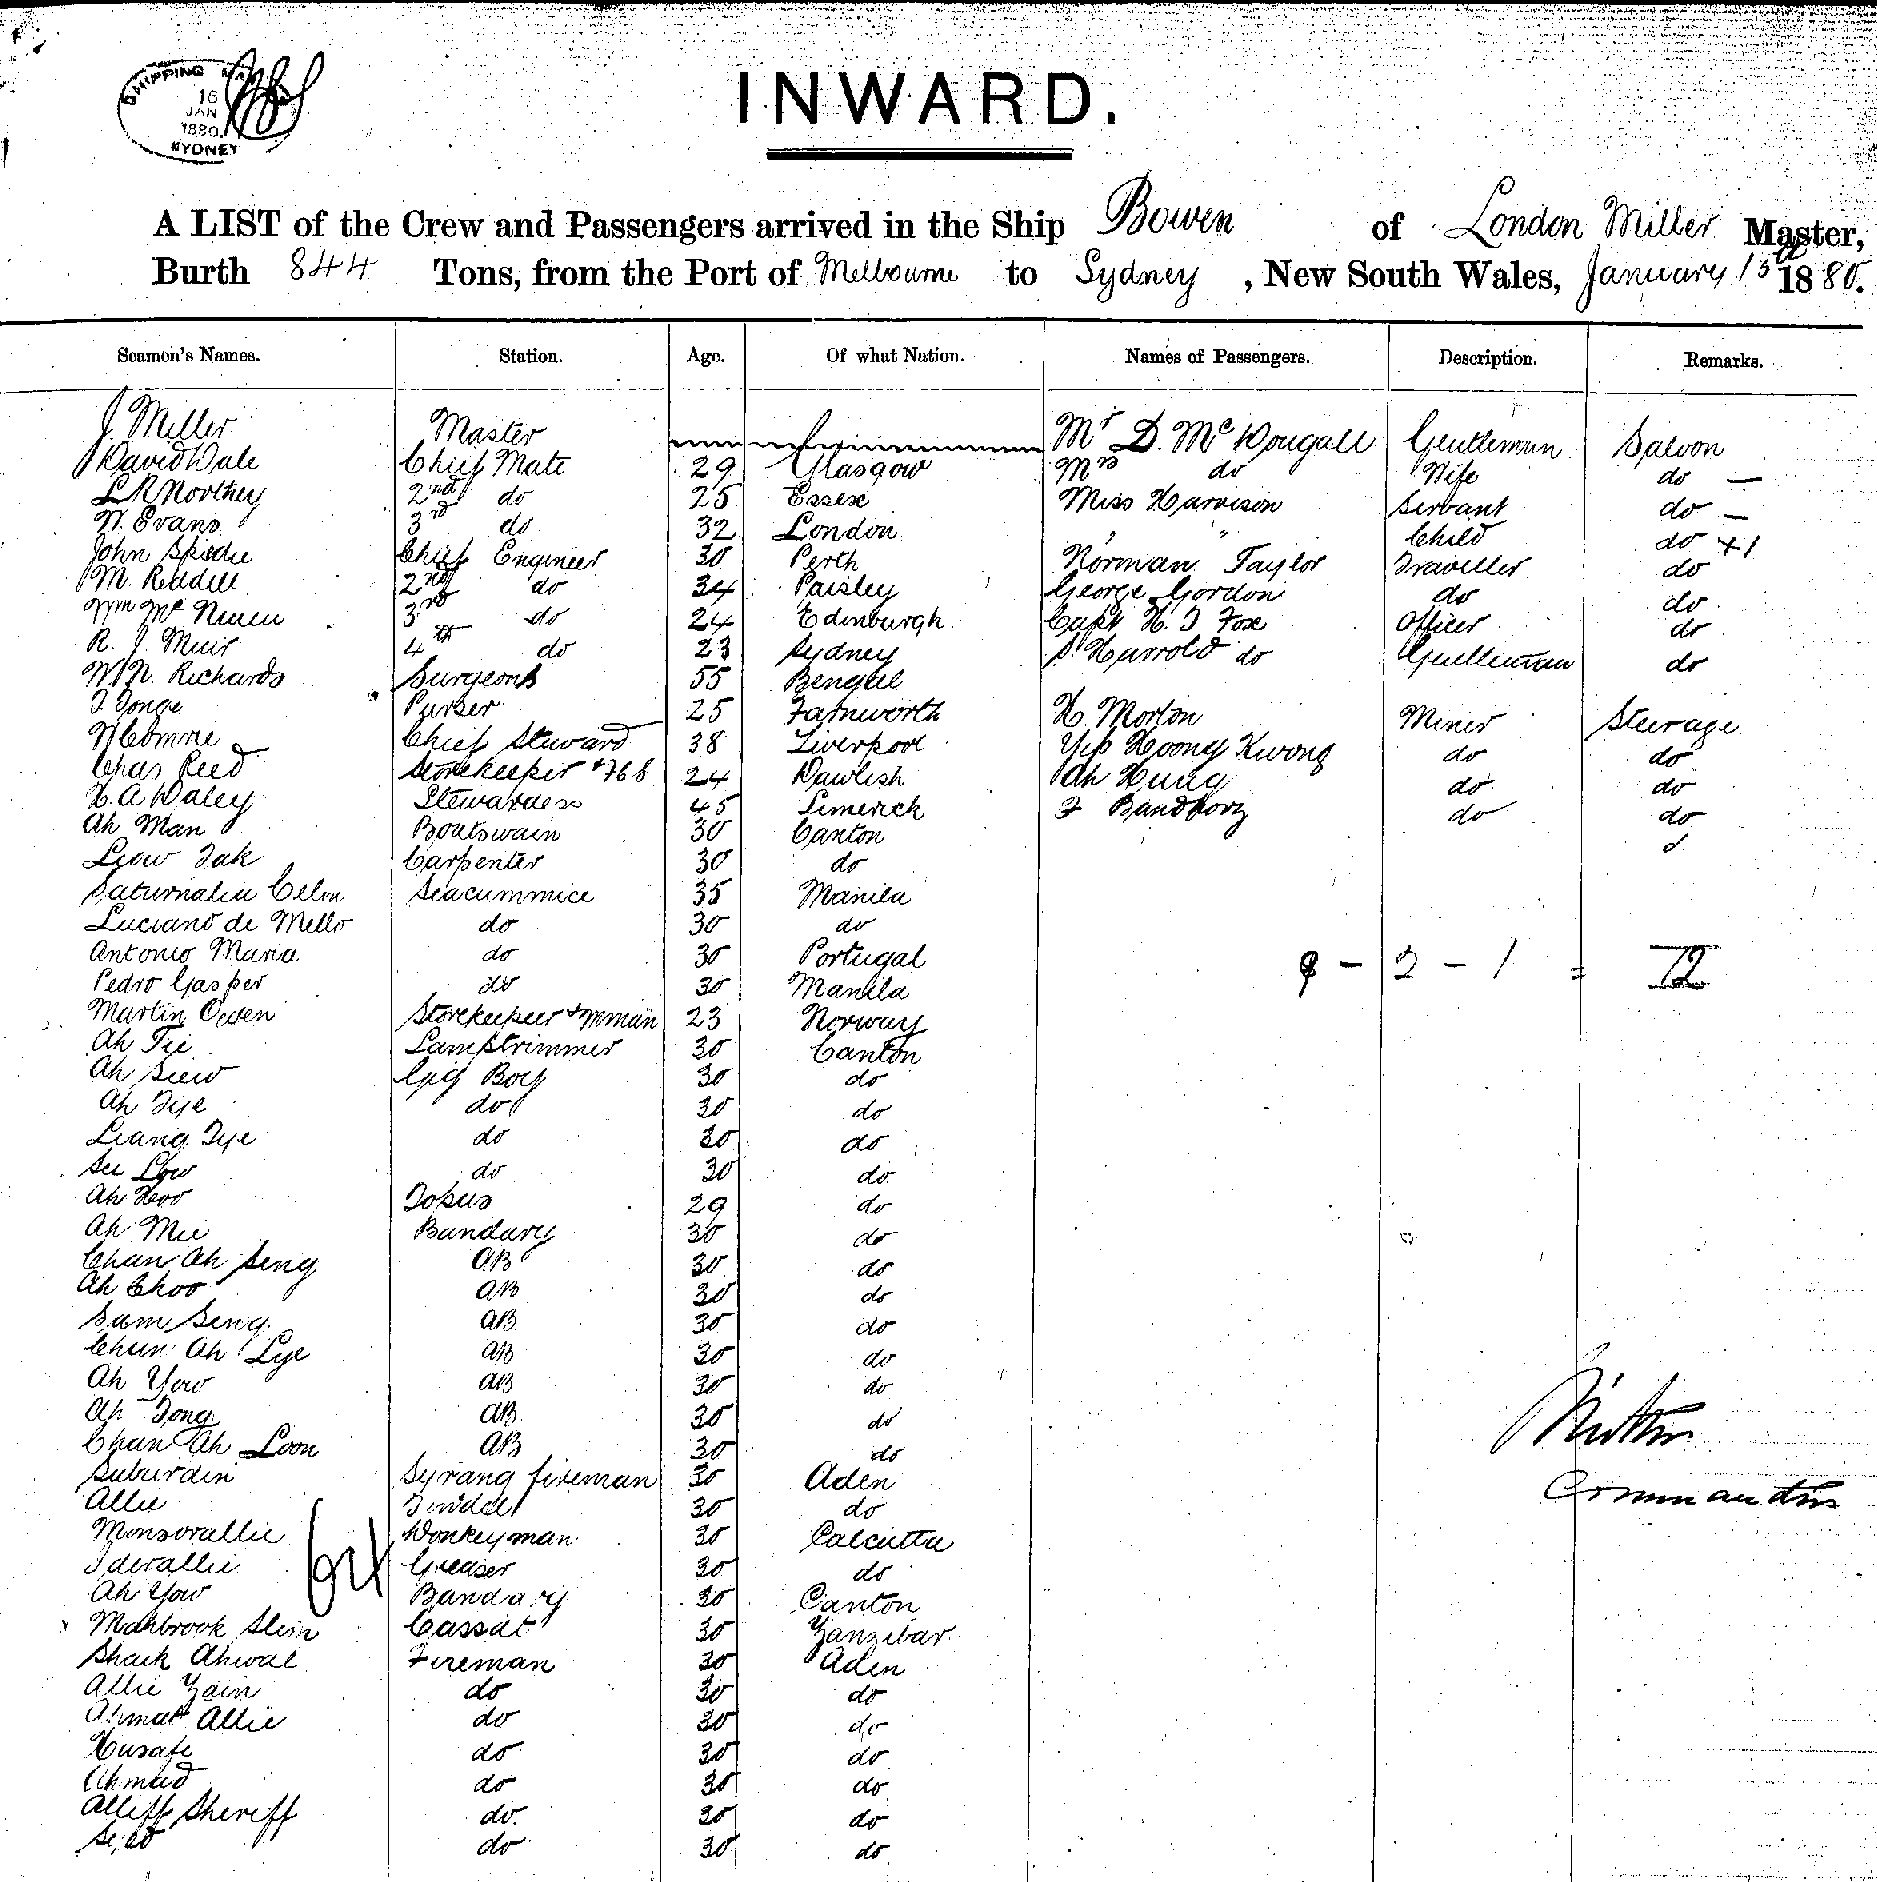 SHIPPING MA
16
JAN
1880
SYDNEY
INWARD.
A LIST of the Crew and Passengers arrived in the Ship Bowen of London Miller Master,
Burth 844 Tons, from the Port of Melbourne to Sydney, New South Wales, January 15th 1880.
Seamen's Names. Station. Age. Of what Nation. Names of Passengers. Description. Remarks.
J Miller Master Mr D. McDougall Gentleman Saloon
David Dale Chief Mate 29 Glasgow Mrs do Wife do —
L R Northey 2nd do 25 Essex Miss Harrison Servant do —
W. Evans 3rd do 32 London " " Child do +1
John Spedie Chief Engineer 30 Perth Norman Taylor Traveller do
M. Riddell 2nd do 34 Paisley George Gordon do do
Wm Mc Niven 3rd do 24 Edinburgh Capt H. T Fox Officer do
R. J. Muir 4th do 23 Sydney S Harrold do Gentleman do
W. N. Richards Surgeon 55 Bengal
T Tonge Purser 25 Farnworth H. Morton Miner Steerage
Chief Steward 38 Liverpool Yip Hoong Kwong do do
Chas Reed Storekeeper 24 Dawlish Ah Hung do do
H. A Daley Stewardess 45 Limerick F do do
Ah Man Boatswain 30 Canton
Leow Tak Carpenter 30 do
Saturnalia Celon Seacunnice 35 Manila
Luciano de Mello do 30 do
Antonio Maria do 30 Portugal 9 - 2 - 1 = 12
Pedro Gasper do 30 Manila
Martin Ogden Storekeeper & 23 Norway
Ah Tie Lamptrimmer 30 Canton
Ah Siew Gig Boy 30 do
Ah Tye do 30 do
Leang Tye do 30 do
See Low do 30 do
Ah Hoo Topus 29 do
Ah Mee Bandary 30 do
Chan Ah Seng AB 30 do
Ah Choo AB 30 do
Sam Seng AB 30 do
Chun Ah Lye AB 30 do
Ah Yow AB 30 do
Ah Tong AB 30 do
Chan Ah Loon AB 30 do
Suburdin Syrang fireman 30 Aden
Allie Tindal 30 do
Monsorallie Donkeyman 30 Calcutta
Iderallie Greaser 30 do
Ah Yow Bandary 30 Canton
Mahbrook Slein Cassat 30 Zanzibar
Shaik Ahwal Fireman 30 Aden
Allie Zain do 30 do
Ahmat Allie do 30 do
Husafe do 30 do
Ahmad do 30 do
Alliff Sheriff do 30 do
do 30 do
64
JMiller
Commander